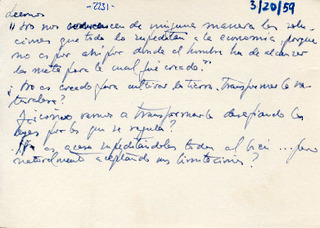 -2231-
3/20/59
leemos
"No nos convencen de ninguna manera las solu-
ciones que todo lo supeditan a la economía, porque
no es por ahí por donde el hombre ha de alcanzar
la meta para la cual fue creado."
¿No es creado para cultivar la tierra, transformar la na-
turaleza?
¿Y cómo vamos a transformarla desafiando las
leyes por las que se regula?
¿No es acaso supeditándolas todas al bien ... pero
naturalmente aceptando sus limitaciones?